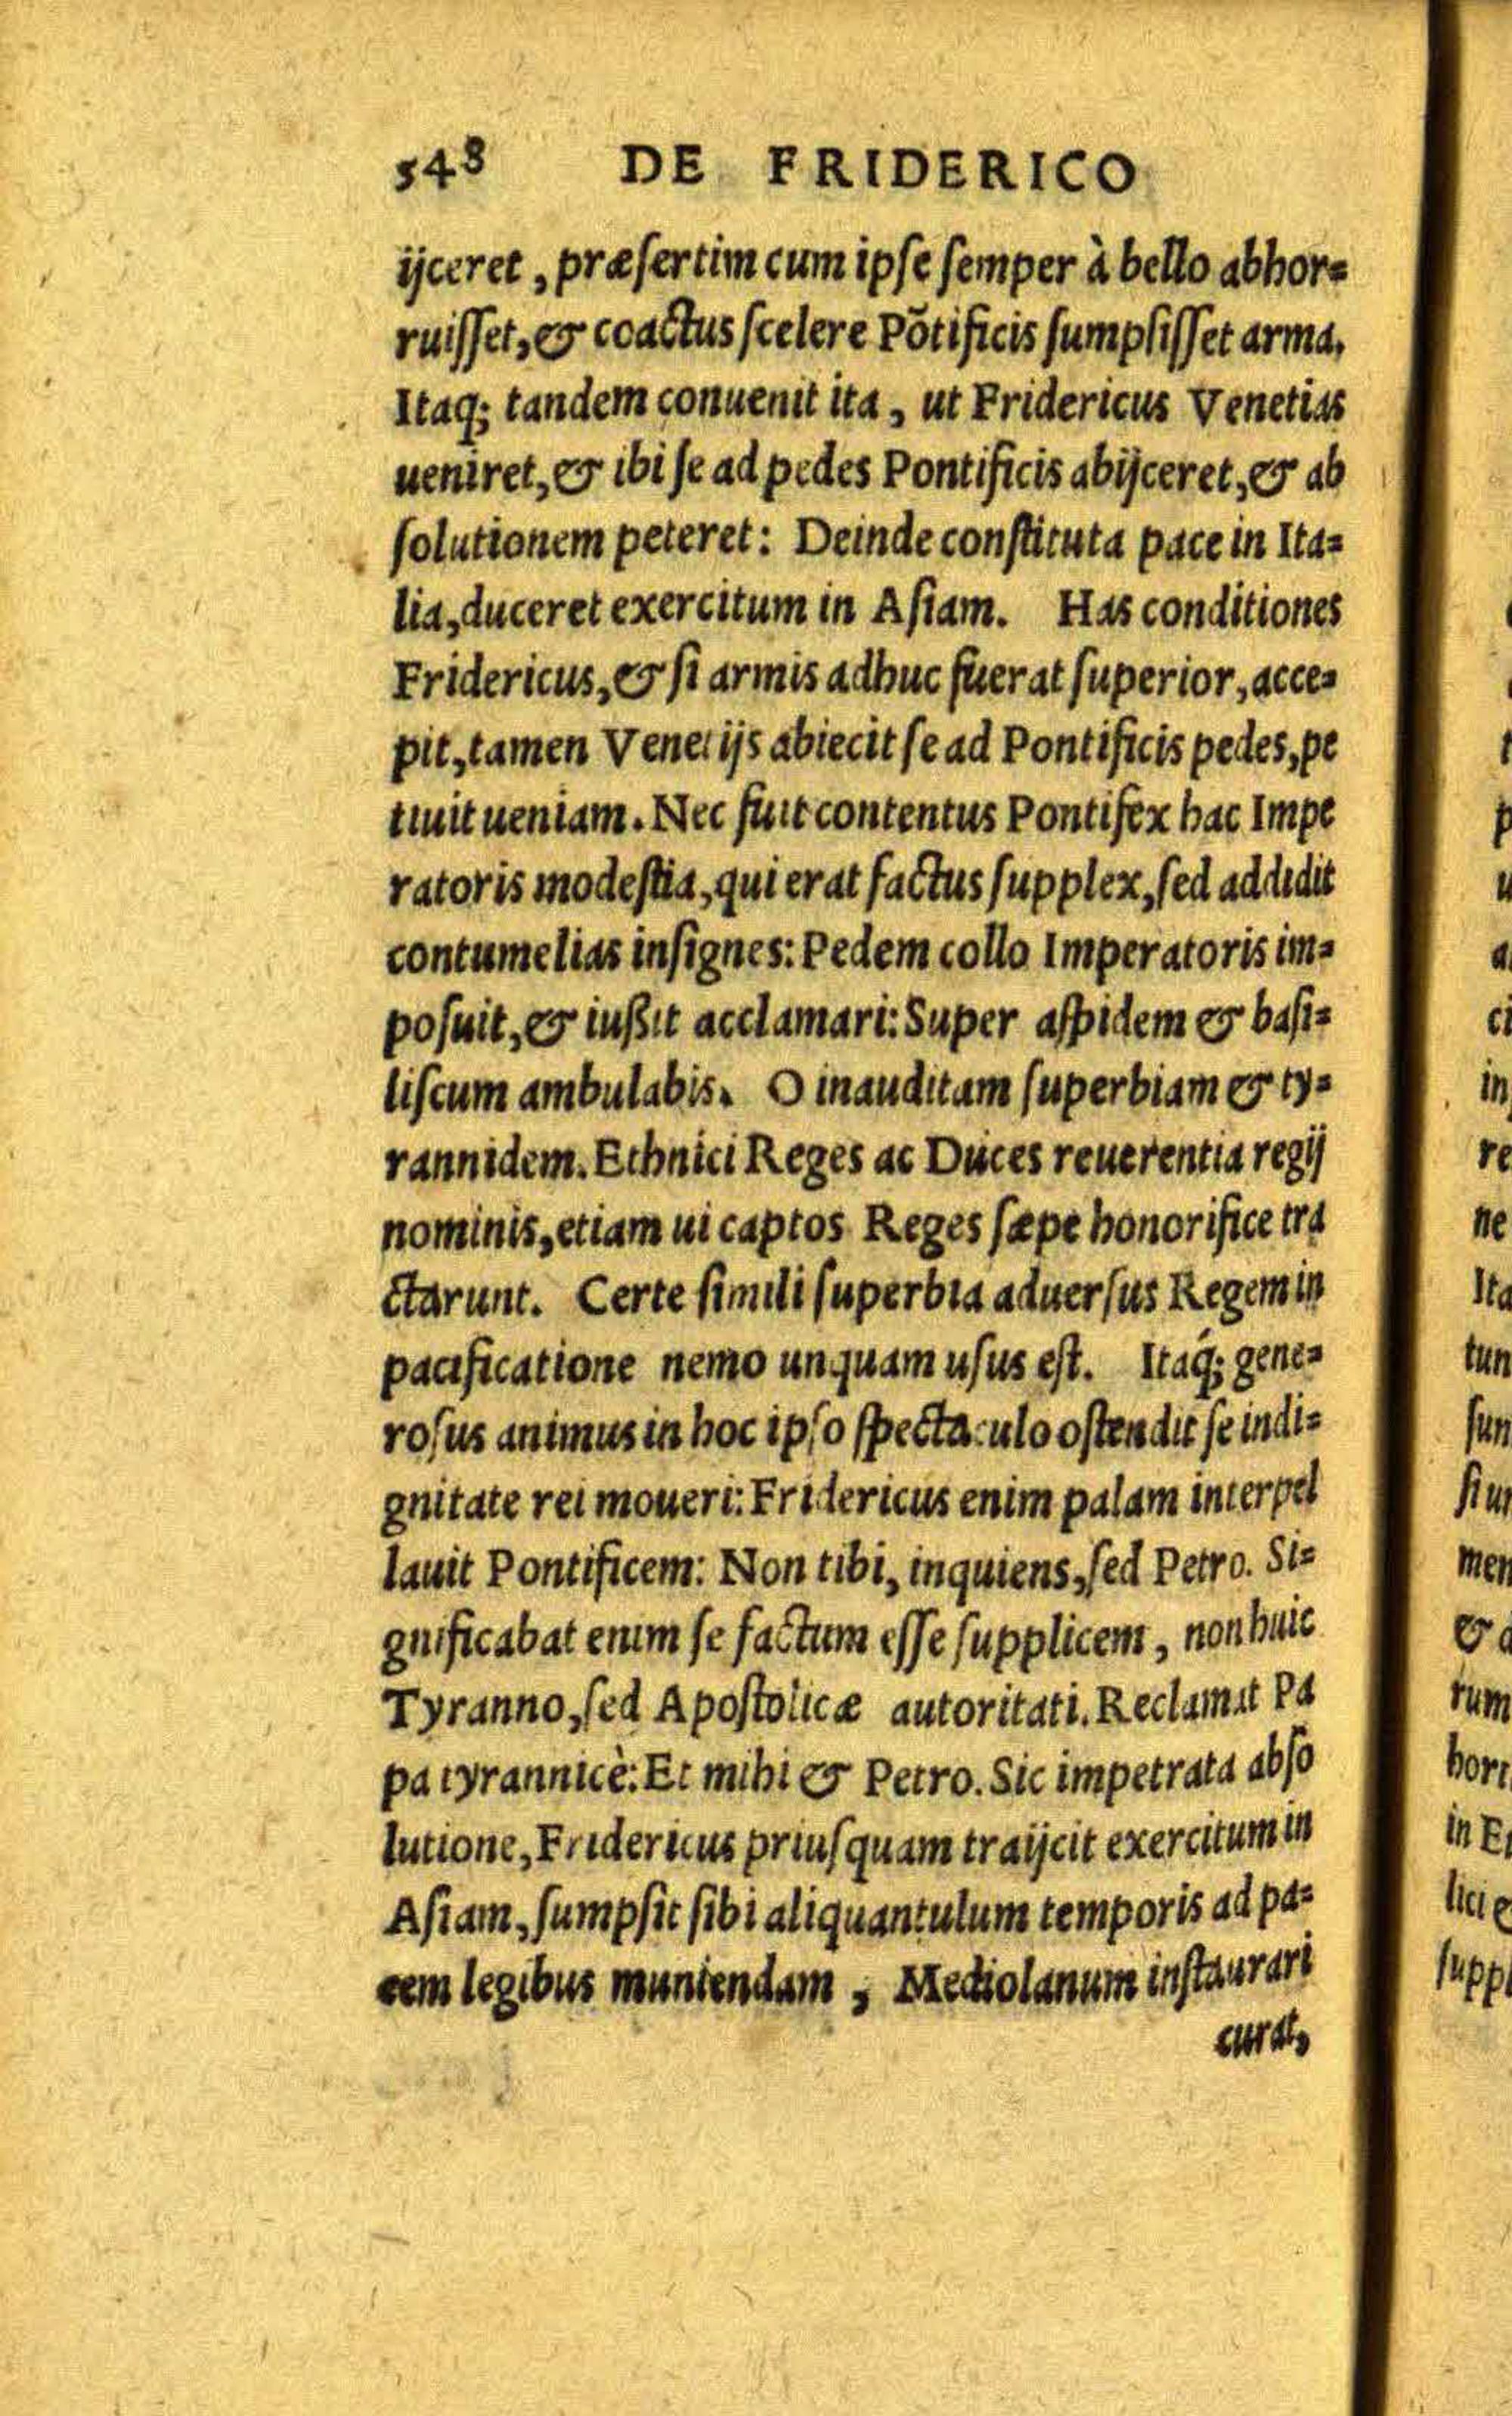 548 DE FRIDERICO
ijceret, præſertim cum ipſe ſemper à bello abhor=
ruiſſet, & coactus ſcelere Põtificis ſumpſiſſet arma.
Itaq; tandem conuenit ita, ut Fridericus Venetias
ueniret, & ibi ſe ad pedes Pontificis abijceret, & ab
ſolutionem peteret: Deinde conſtituta pace in Ita=
lia, duceret exercitum in Aſiam. Has conditiones
Fridericus, & ſi armis adhuc fuerat ſuperior, acce=
pit, tamen Venetijs abiecit ſe ad Pontificis pedes, pe
tiuit ueniam. Nec fuit contentus Pontifex hac Impe
ratoris modeſtia, qui erat factus ſupplex, ſed addidit
contumelias inſignes: Pedem collo Imperatoris im=
poſuit, & iußit acclamari: Super aſpidem & baſi=
liſcum ambulabis. O inauditam ſuperbiam & ty=
rannidem. Ethnici Reges ac Duces reuerentia regij
nominis, etiam ui captos Reges ſæpe honorifice tra
ctarunt. Certe ſimili ſuperbia aduerſus Regem in
pacificatione nemo unquam uſus eſt. Itaq́; gene=
roſus animus in hoc ipſo ſpectaculo oſtendit ſe indi=
gnitate rei moueri: Fridericus enim palam interpel
lauit Pontificem: Non tibi, inquiens, ſed Petro. Si=
gnificabat enim ſe factum eſſe ſupplicem, non huic
Tyranno, ſed Apoſtolicæ autoritati. Reclamat Pa
pa tyrannicè: Et mihi & Petro. Sic impetrata abſo
lutione, Fridericus priuſquam traijcit exercitum in
Aſiam, ſumpſit ſibi aliquantulum temporis ad pa=
cem legibus muniendam, Mediolanum inſtaurari
curat,